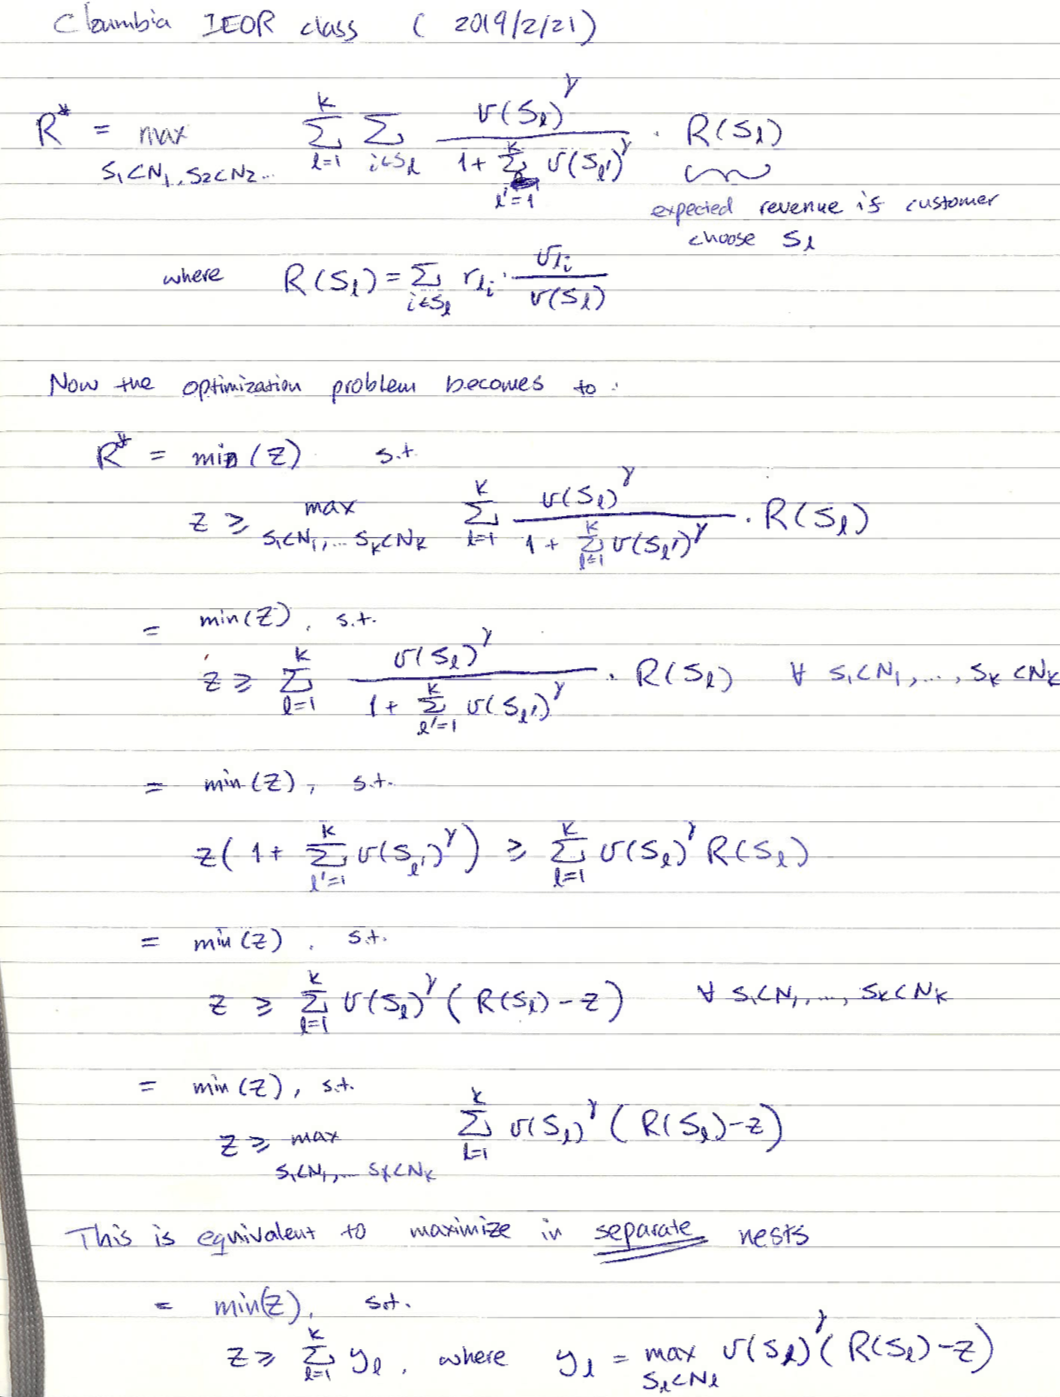 Cloumbia IEOR class ( 2019/2/21)
R* = max_{S₁⊂N₁, S₂⊂N₂...} ∑_{l=1}^{K} ∑_{i∈S_l} v(S_l)^γ / (1 + ∑_{l'=1}^{K} v(S_l')^γ) · R(S_l)
expected revenue if customer
choose S_l
where R(S_l) = ∑_{i∈S_l} r_{li} · v_{li} / v(S_l)
Now the optimization problem becomes to :
R* = min (z) s.t
z ≥ max_{S₁⊂N₁,... S_K⊂N_K} ∑_{l=1}^{K} v(S_l)^γ / (1 + ∑_{l=1}^{K} v(S_l')^γ) · R(S_l)
= min(z), s.t.
z ≥ ∑_{l=1}^{K} v(S_l)^γ / (1 + ∑_{l'=1}^{K} v(S_l')^γ) · R(S_l) ∀ S₁⊂N₁,..., S_K⊂N_K
= min(z), s.t.
z( 1+ ∑_{l'=1}^{K} v(S_l')^γ ) ≥ ∑_{l=1}^{K} v(S_l)^γ R(S_l)
= min(z), s.t.
z ≥ ∑_{l=1}^{K} v(S_l)^γ ( R(S_l) - z ) ∀ S₁⊂N₁,..., S_K⊂N_K
= min(z), s.t.
z ≥ max_{S₁⊂N₁,... S_K⊂N_K} ∑_{l=1}^{K} v(S_l)^γ ( R(S_l) - z )
This is equivalent to maximize in separate nests
= min(z), s.t.
z ≥ ∑_{l=1}^{K} y_l, where y_l = max_{S_l⊂N_l} v(S_l)^γ ( R(S_l) - z )